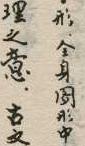 形.全身圖形中
理之意.古文